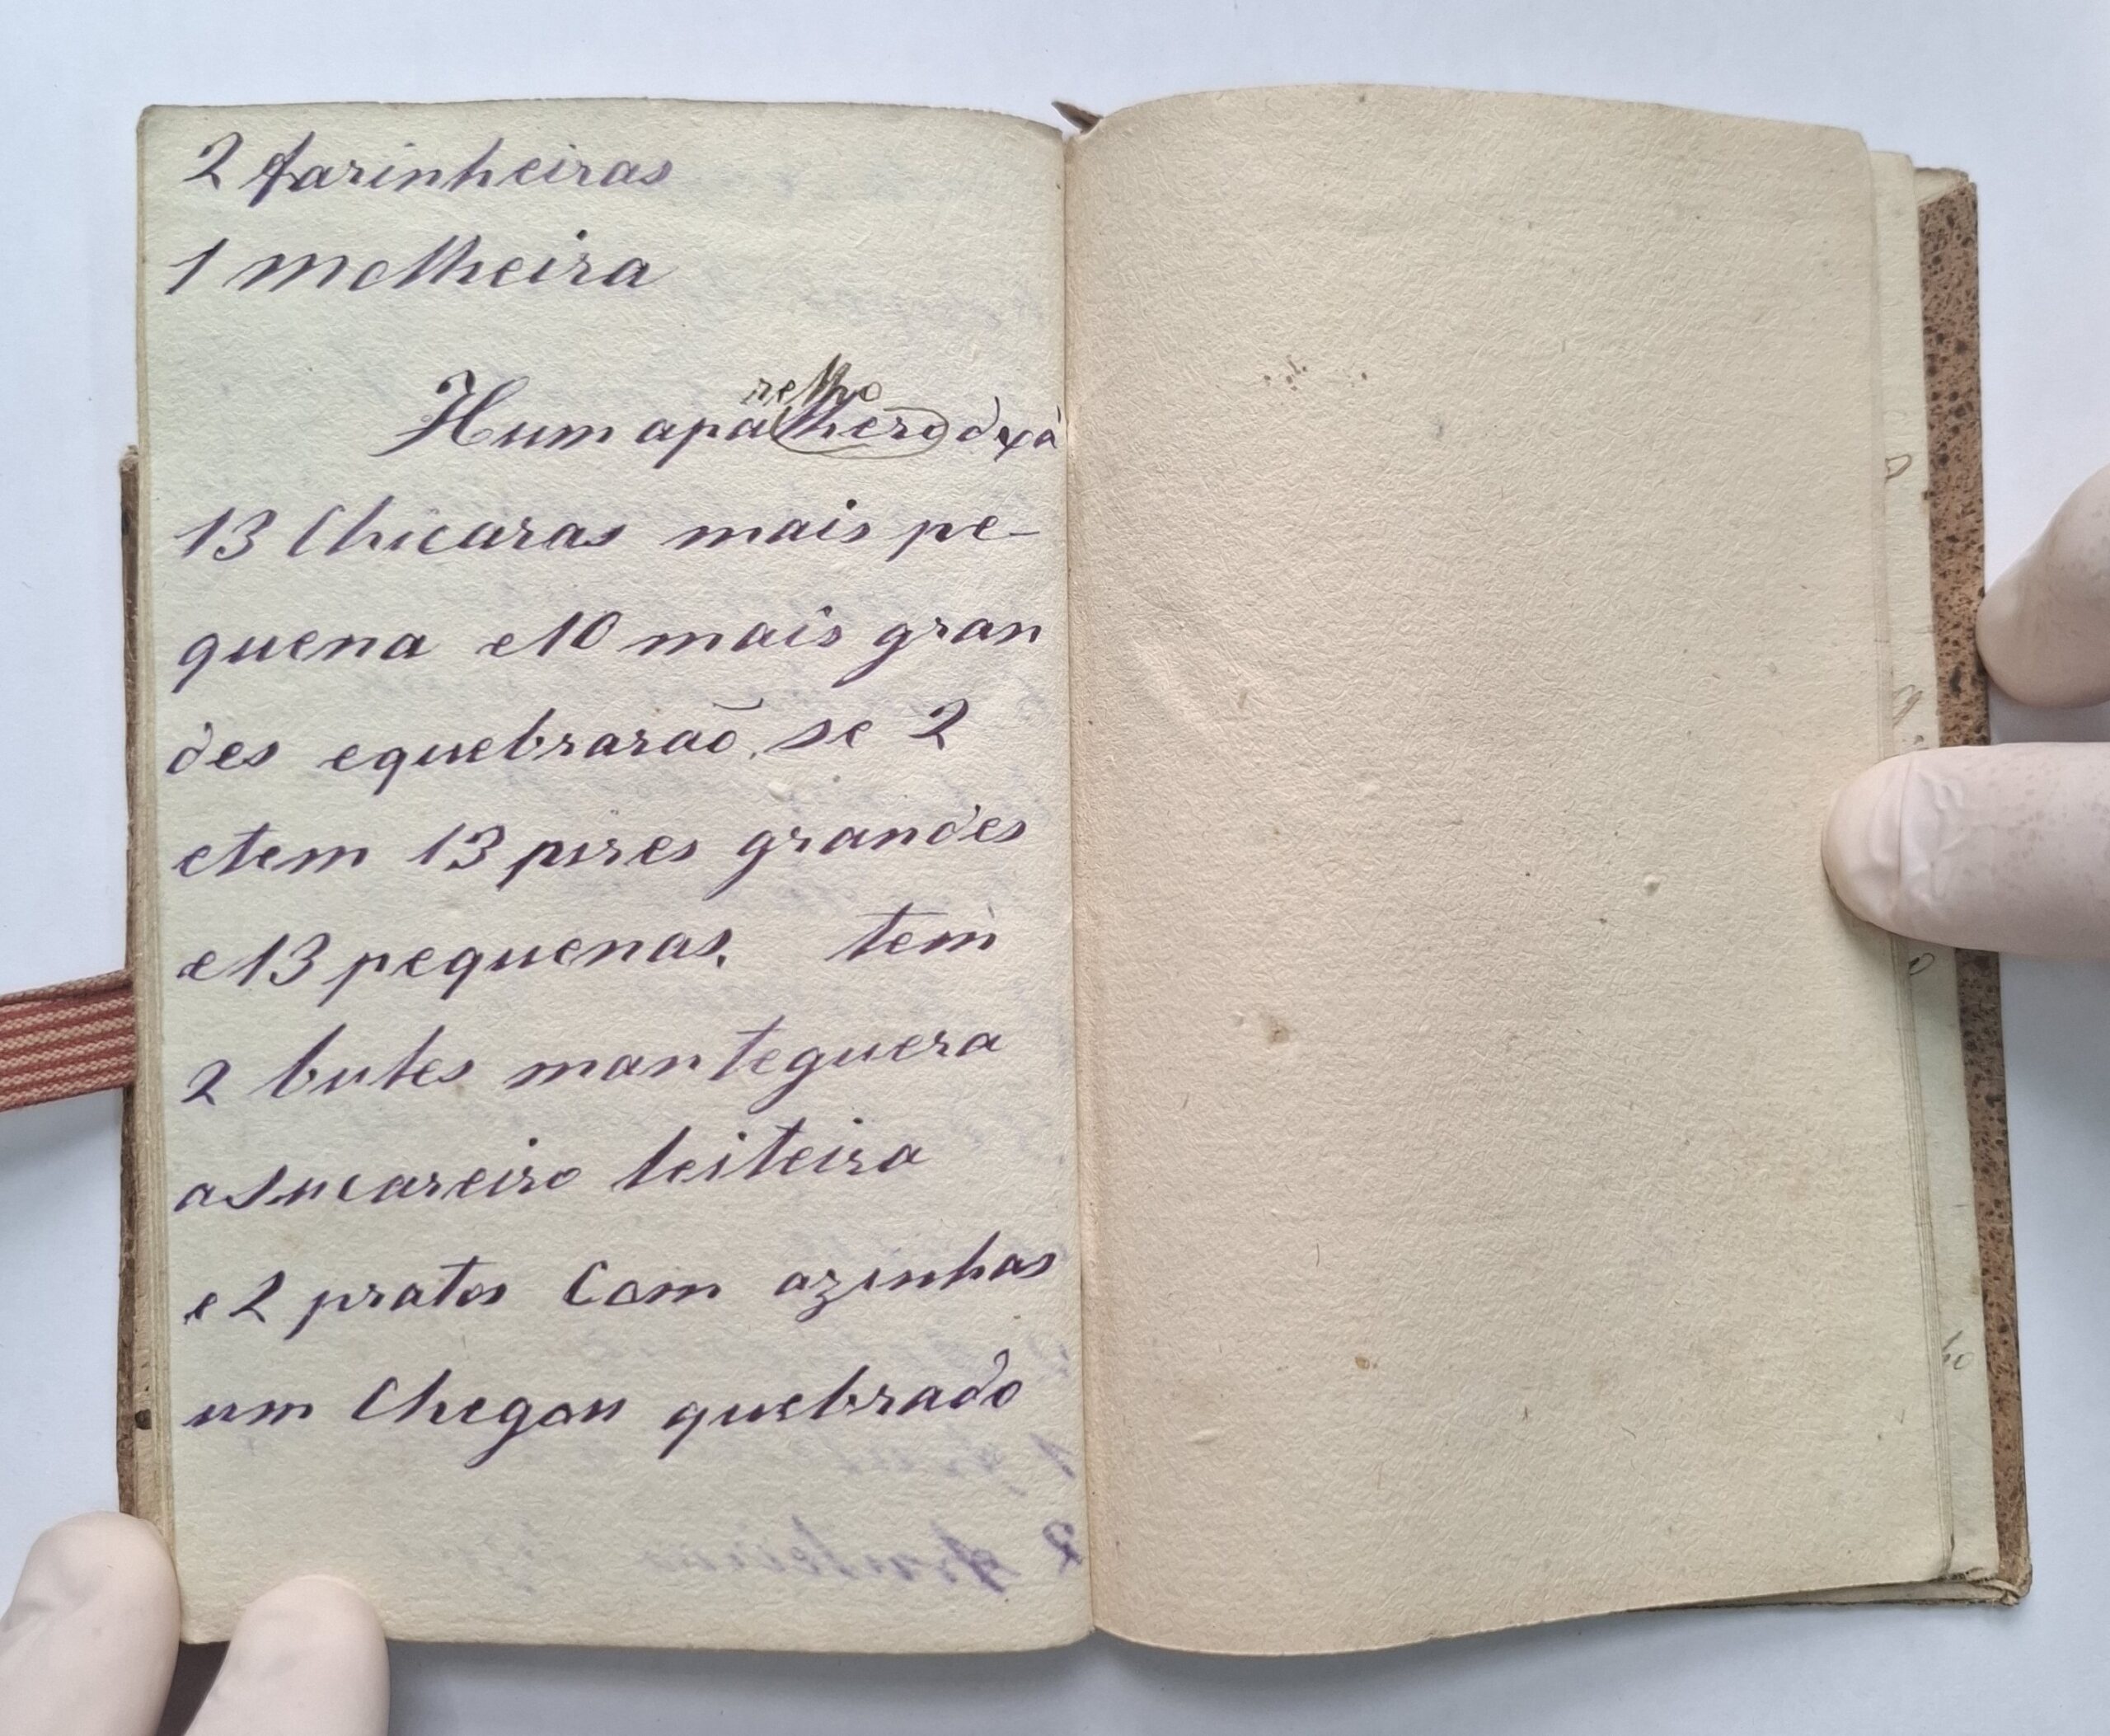 2 farinheiras
1 molheira
relho
Hum apalhero dxá
13 Chicaras mais pe-
quena e 10 mais gran
des equebrarão se 2
etem 13 pires grandes
e 13 pequenas. tem
2 bules manteguera
asucareiro leiteira
e 2 pratos Com azinhas
um Chegou quebrado